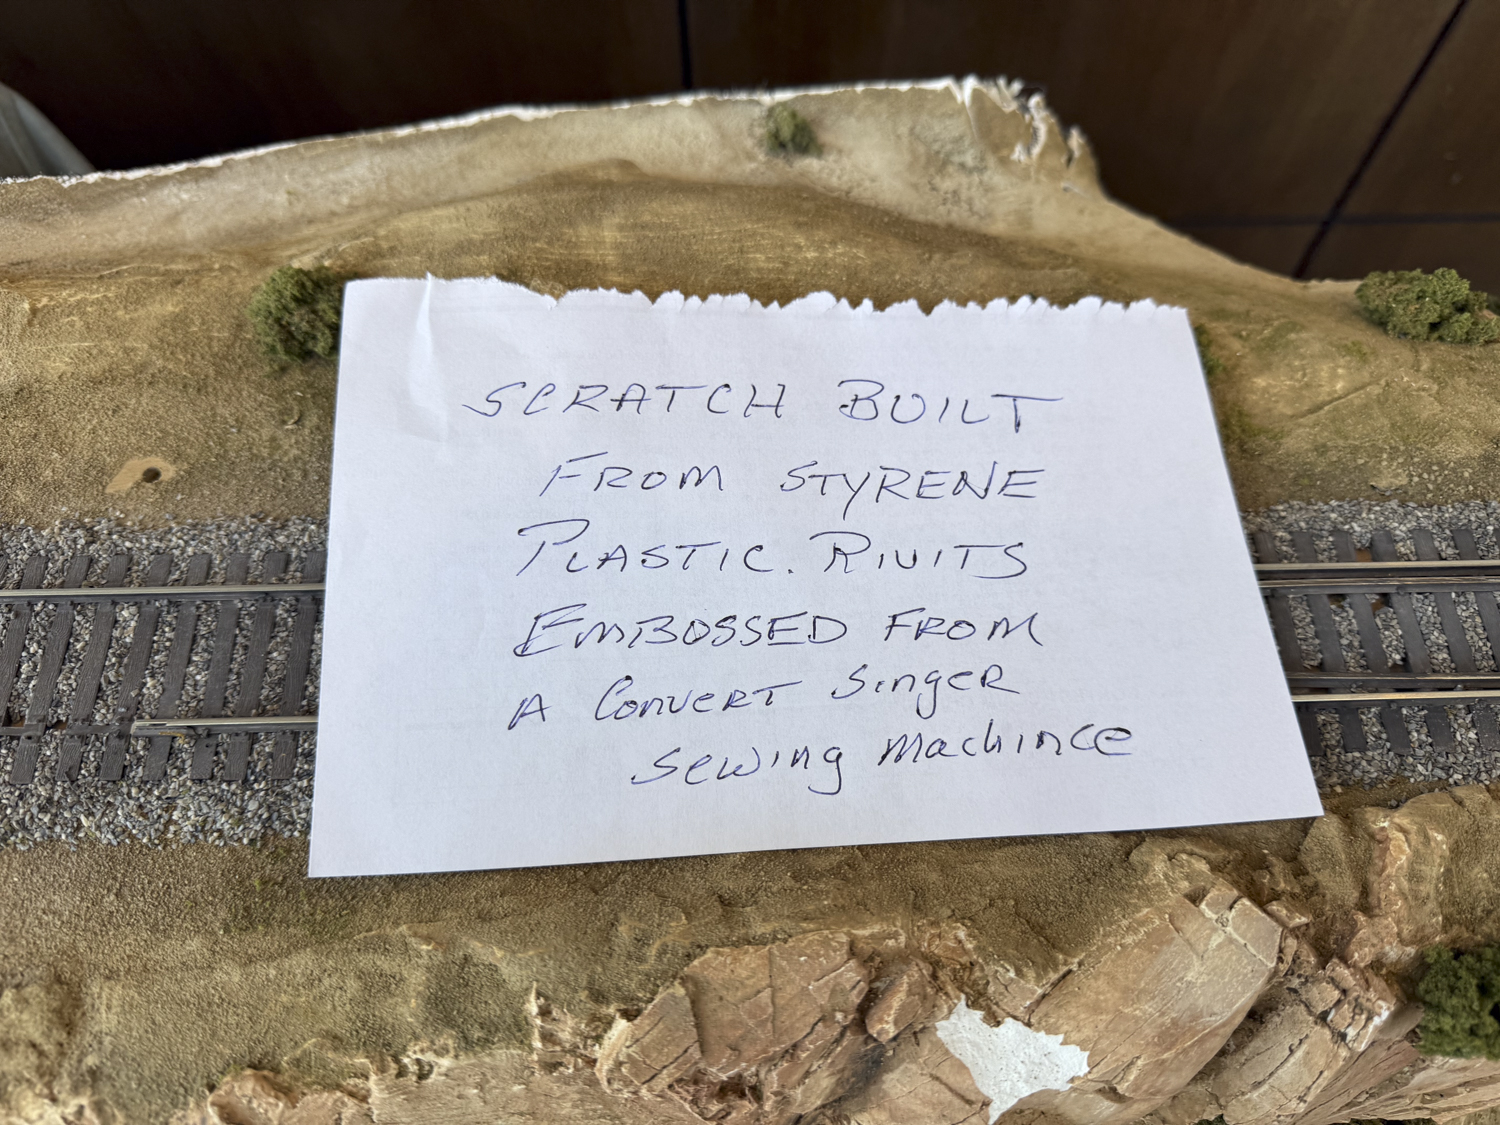 SCRATCH BUILT
FROM STYRENE
PLASTIC. RIVITS
EMBOSSED FROM
A CONVERT SINGER
SEWING MACHINCE